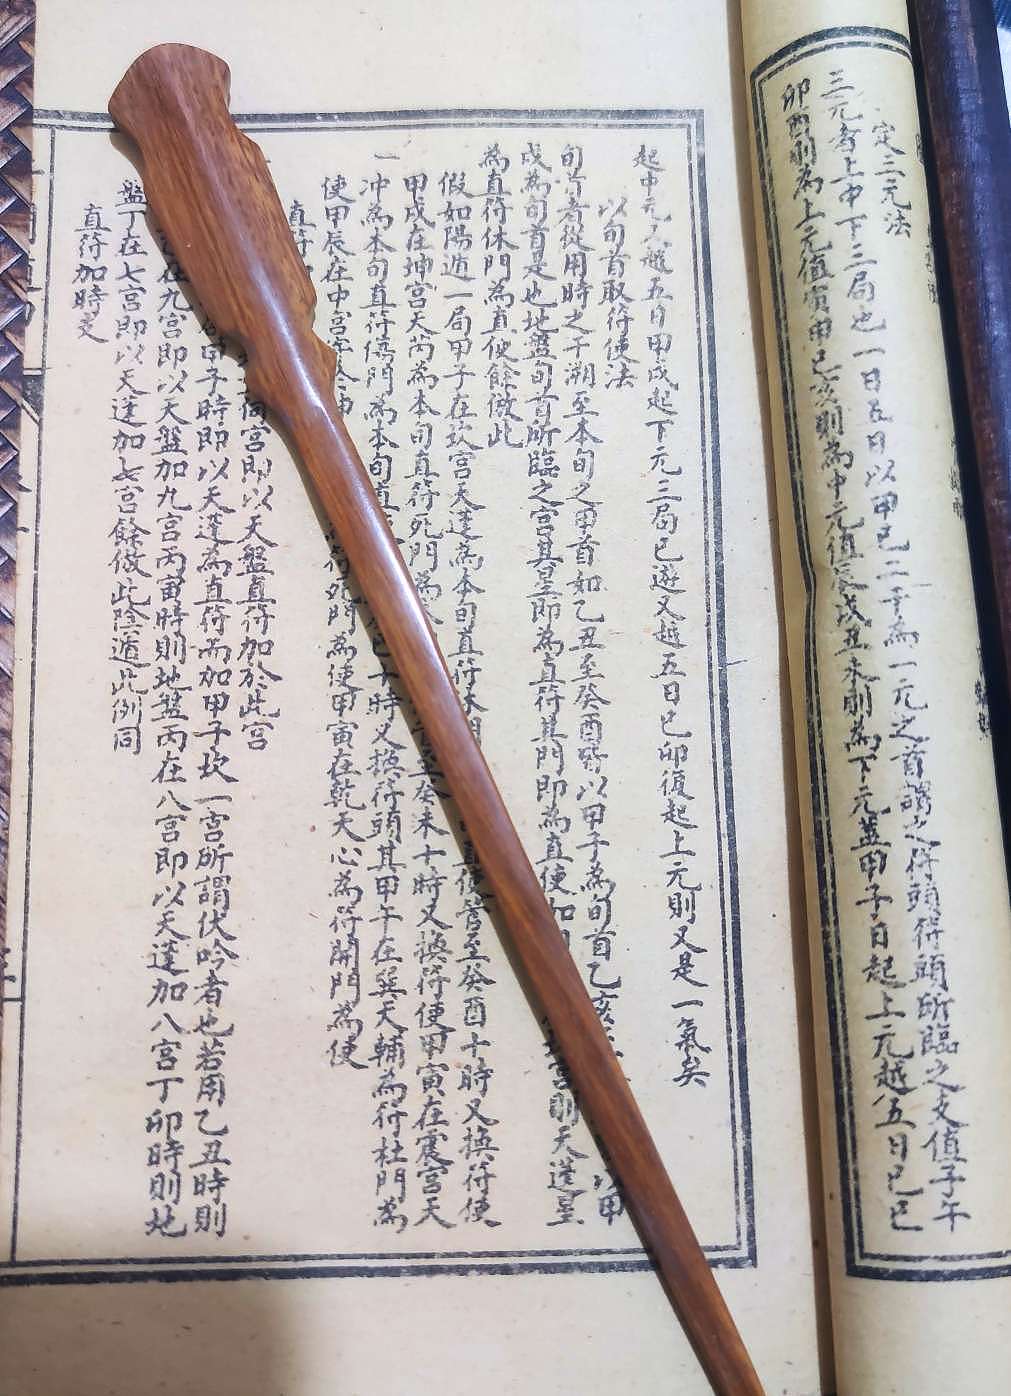 定三元法
三元者上中下三局也一日五日以甲己二干為一元之首謂之符頭符頭所臨之支值子午
卯酉則為上元值寅申巳亥則為中元值辰戌丑未則為下元蓋甲子日起上元越五日己巳
起中元又越五日甲戌起下元三局已遊又越五日己卯復起上元則又是一氣矣
以旬首取符使法
旬首者從用時之干溯至本旬之甲首如乙丑至癸酉皆以甲子為旬首乙亥以甲
戌為旬首是也地盤旬首所臨之宮其星即為直符其門即為直使如宮則天蓬星
為直符休門為直使餘倣此
假如陽遁一局甲子在坎宮天蓬為本旬直符休門直使管至癸酉十時又換符使
甲戌在坤宮天芮為本旬直符死門為至癸未十時又換符使甲寅在震宮天
一冲為本旬直符傷門為本旬直巳十時又換符頭其甲午在巽天輔為符杜門為
使甲辰在中宮符死門為使甲寅在乾天心為符開門為使
直符加
何宮即以天盤直符加於此宮
甲子時即以天蓬為直符而加甲子坎一宮所謂伏吟者也若用乙丑時則
在九宮即以天盤加九宮丙寅時則地盤丙在八宮即以天蓬加八宮丁卯時則地
盤丁在七宮即以天蓬加七宮餘倣此陰遁此例同
直符加時支